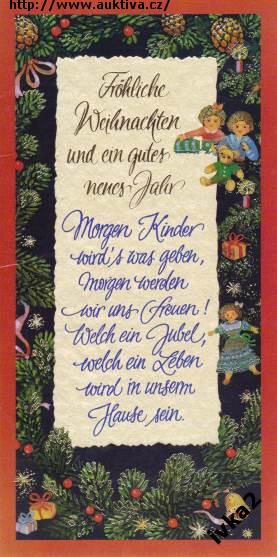 http://www.auktiva.cz/
Fröhliche
Weihnachten
und ein gutes
neues Jahr
Morgen Kinder
wird's was geben,
Morgen werden
wir uns freuen!
Welch ein Jubel,
welch ein Leben
wird in unserm
Hause sein.
ivka2